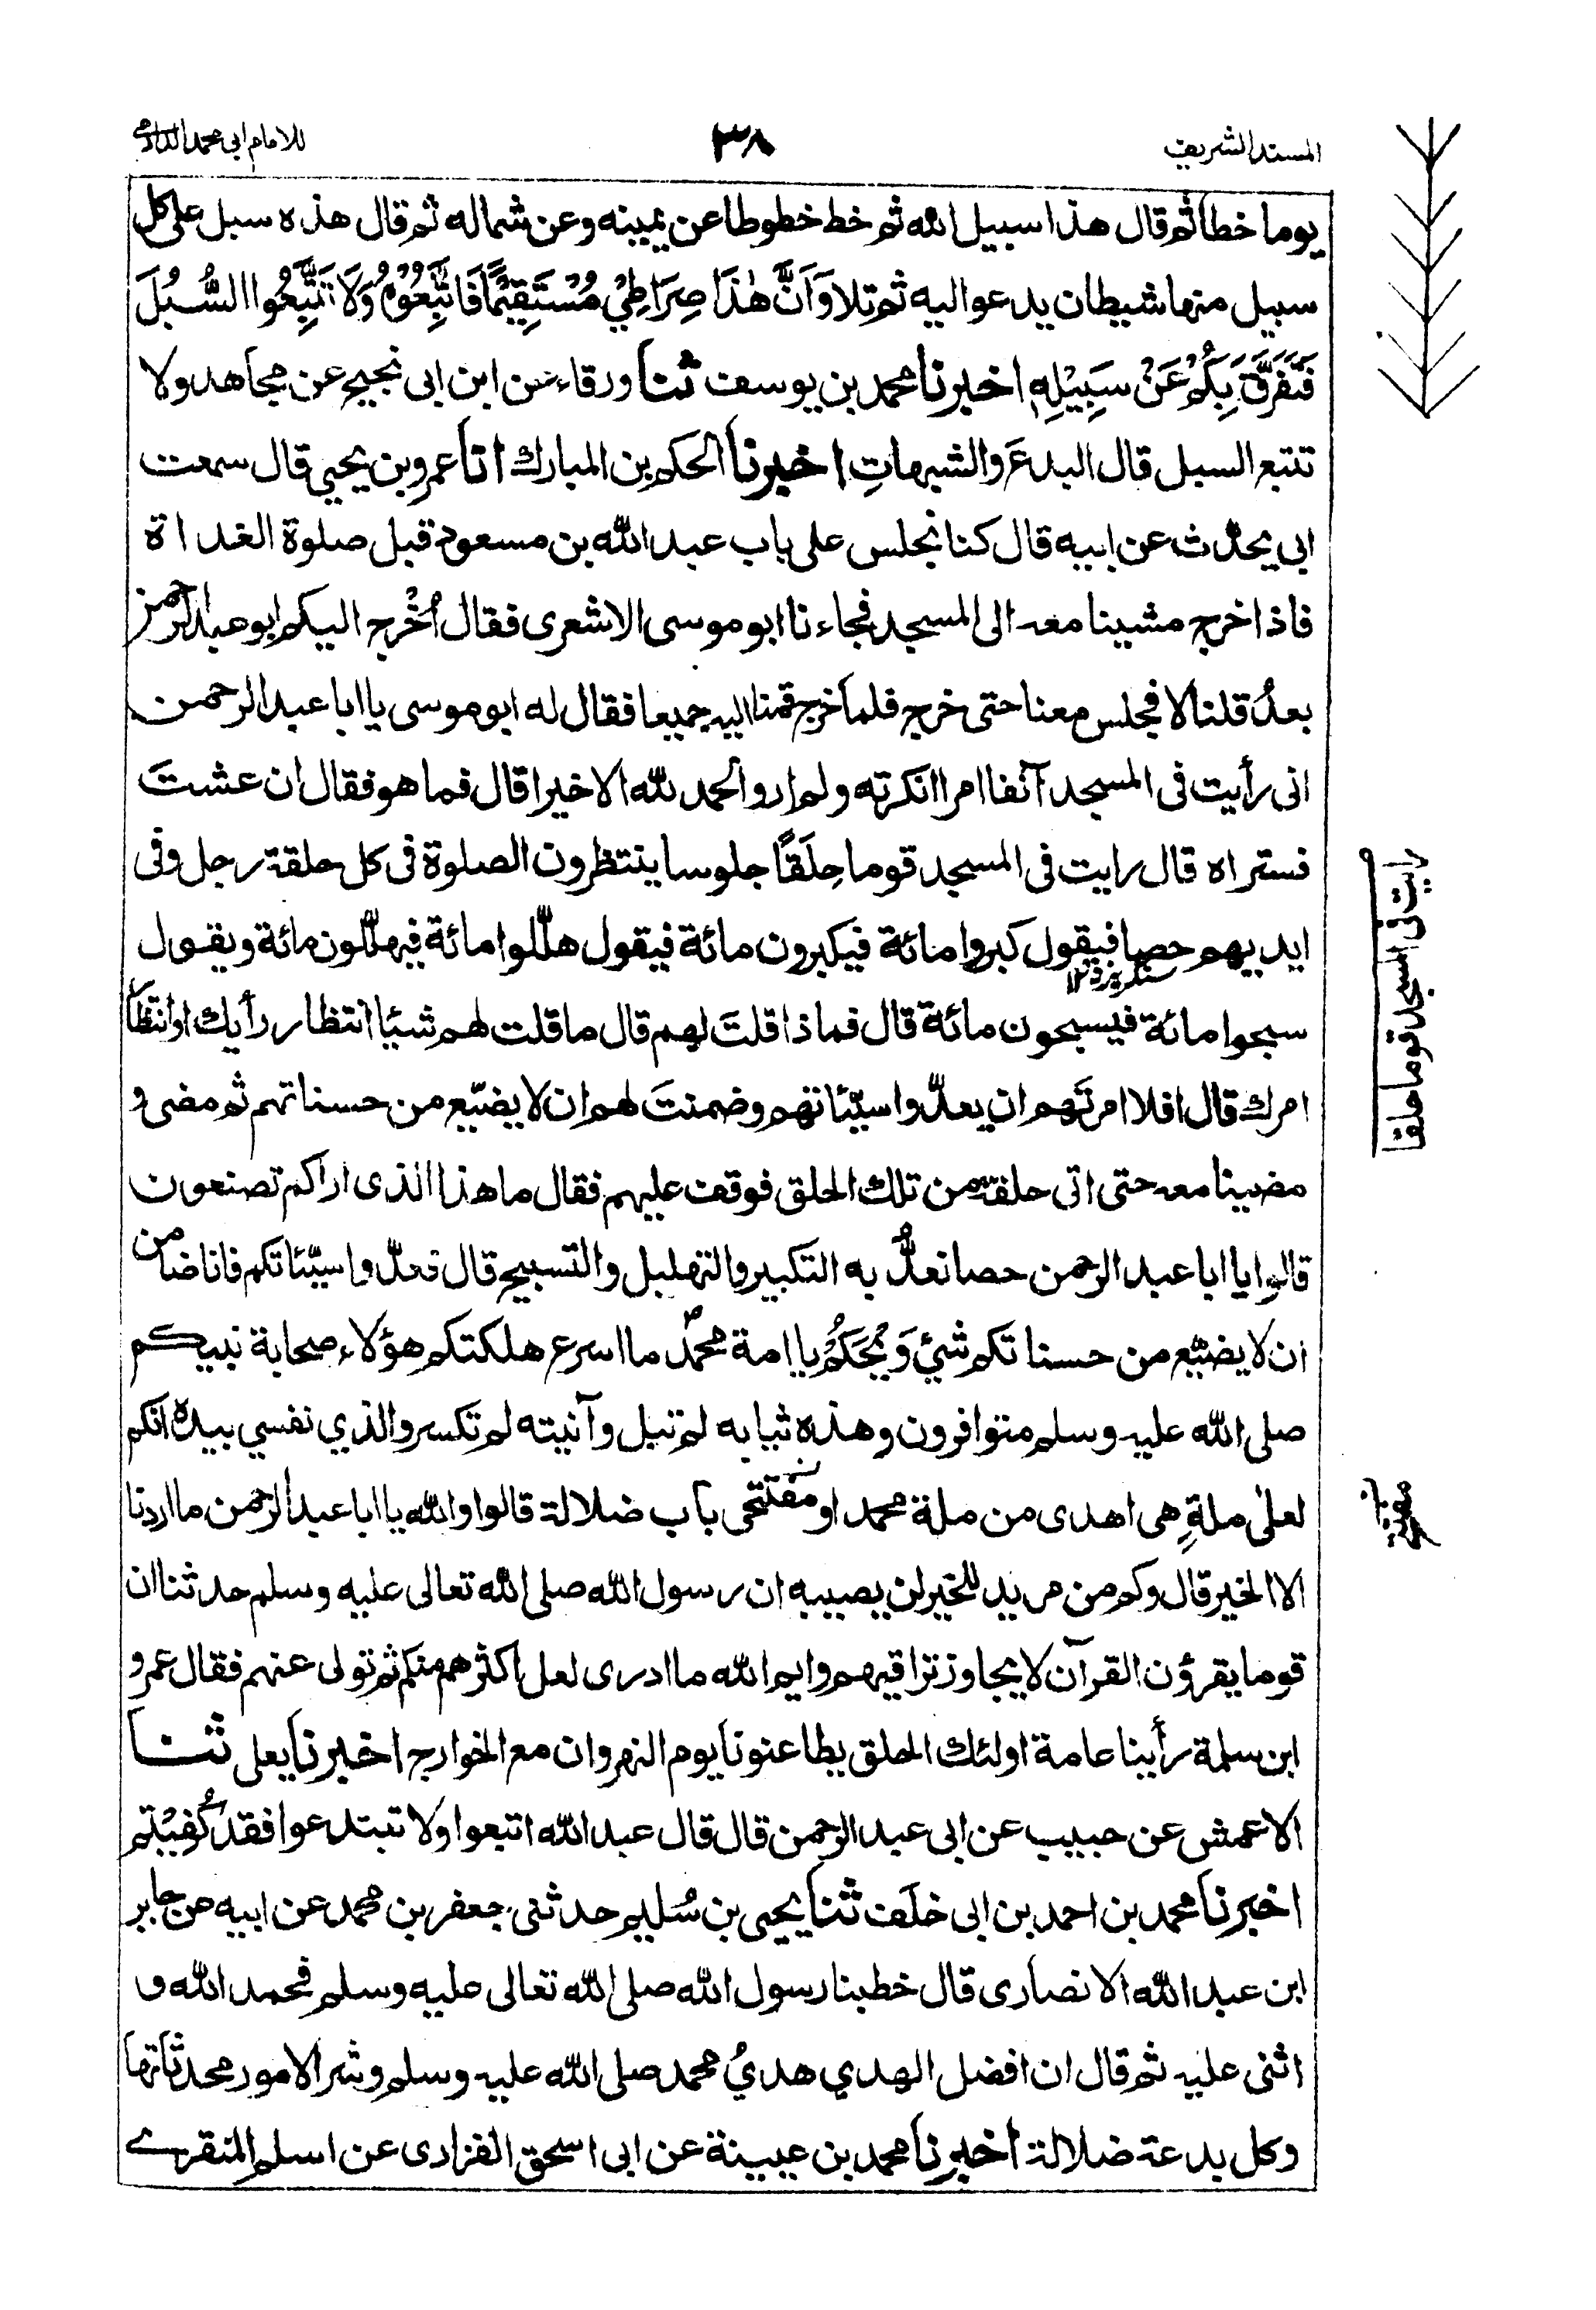 المسند الشريف
٣٨
للامام ابى محمد الدارمى
يوما خطا ثم قال هذا سبيل الله ثم خط خطوطا عن يمينه وعن شماله ثم قال هذه سبل على كل
سبيل منها شيطان يدعو اليه ثم تلا وَاَنَّ هٰذَا صِرَاطِيْ مُسْتَقِيْمًا فَاتَّبِعُوْهُ وَلَا تَتَّبِعُوا السُّبُلَ
فَتَفَرَّقَ بِكُمْ عَنْ سَبِيْلِهٖ اخبرنا محمد بن يوسف ثنا ورقاء عن ابن ابى نجيح عن مجاهد ولا
تتبع السبل قال البدعَ والشبهاتِ اخبرنا الحكم بن المبارك انا عمرو بن يحيي قال سمعت
ابى يحدّث عن ابيه قال كنا نجلس على باب عبد الله بن مسعود قبل صلوة الغداة
فاذا خرج مشينا معه الى المسجد فجاءنا ابو موسى الاشعرى فقال أخْرج اليكم ابو عبد الرحمن
بعدُ قلنا لا فجلس معنا حتى خرج فلما خرج قمنا اليه جميعا فقال له ابو موسى يا ابا عبد الرحمن
انى رأيت فى المسجد آنفا امرا انكرته ولم ار والحمد لله الا خيرا قال فما هو فقال ان عشتَ
فستراه قال رايت فى المسجد قوما حِلَقًا جلوسا ينتظرون الصلوة فى كل حلقة رجل وفى
ايديهم حصا فيقول كبروا مائة فيكبرون مائة فيقول هلّلوا مائة فيهلّلون مائة ويقول
سنگريزه ١٢
سبحوا مائة فيسبحون مائة قال فماذا قلتَ لهم قال ما قلت لهم شيئا انتظار رأيك او انتظا
امرك قال افلا امرتَهم ان يعدّوا سيّئاتهم وضمنتَ لهم ان لا يضيّع من حسناتهم ثم مضى و
مضينا معه حتى اتى حلقة من تلك الحلق فوقف عليهم فقال ما هذا الذى اراكم تصنعون
قالوا يا ابا عبد الرحمن حصا نعدُّ به التكبير والتهليل والتسبيح قال فعدّوا سيّئاتكم فانا ضامن
ان لا يضيّع من حسناتكم شيٌ وَيْحَكُمْ يا امة محمدٍ ما اسرع هلكتكم هؤلاء صحابة نبيكم
صلى الله عليه وسلم متوافرون وهذه ثيابه لم تبل وآنيته لم تكسر والذي نفسي بيده انكم
لعلىٰ ملةٍ هى اهدى من ملة محمد او مفتتحى باب ضلالة قالوا والله يا ابا عبد الرحمن ما اردنا
الا الخير قال وكم من مريد للخير لن يصيبه ان رسول الله صلى الله تعالى عليه وسلم حدثنا ان
قوما يقرؤن القرآن لا يجاوز تراقيهم وايم الله ما ادرى لعل اكثرهم منكم ثم تولى عنهم فقال عمرو
ابن سلمة رأينا عامة اولئك الحلق يطاعنونا يوم النهروان مع الخوارج اخبرنا يعلى ثنا
الاعمش عن حبيب عن ابى عبد الرحمن قال قال عبد الله اتبعوا ولا تبتدعوا فقد كُفِيْتم
اخبرنا محمد بن احمد بن ابى خلَف ثنا يحيى بن سُليم حدثنى جعفر بن محمد عن ابيه عن جابر
ابن عبد الله الانصارى قال خطبنا رسول الله صلى الله تعالى عليه وسلم فحمد الله و
اثنى عليه ثم قال ان افضل الهدي هديُ محمد صلى الله عليه وسلم وشر الامور محدثاتها
وكل بدعة ضلالة اخبرنا محمد بن عيينة عن ابى اسحق الفزارى عن اسلم المنقرے
رايت فى المسجد قوما حلقا